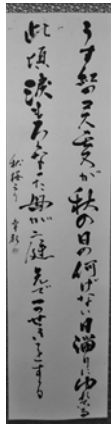 うす紅のコスモスが秋の日の何げない日溜りにゆれている
此頃涙もろくなった母が庭先で一つせきをする
秋桜より